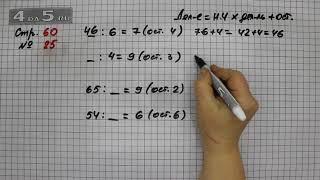 4 DA 5.RU
Дел-е = Н.ч × дел-ль + ост.
Стр. 60
№ 25
46 : 6 = 7 (ост. 4) 7·6+4 = 42+4=46
_ : 4 = 9 (ост. 3)
65 : _ = 9 (ост. 2)
54 : _ = 6 (ост. 6)